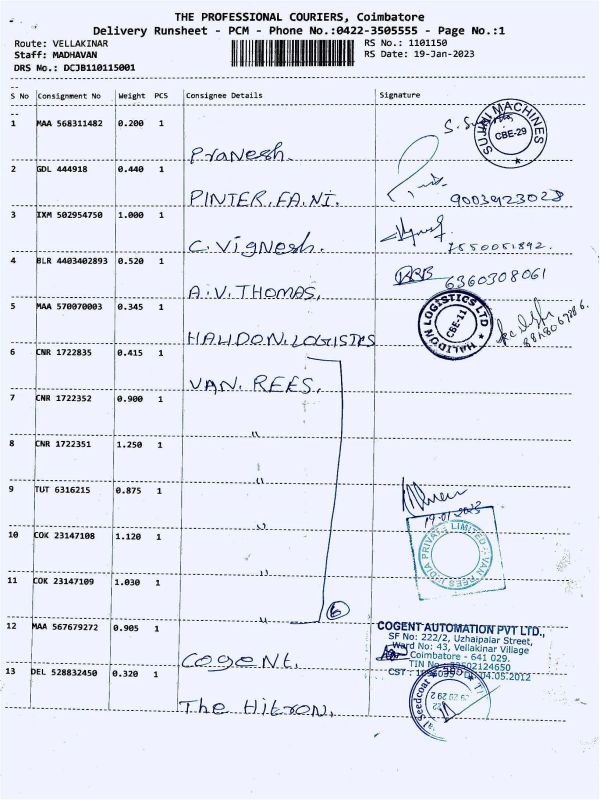 THE PROFESSIONAL COURIERS, Coimbatore
Delivery Runsheet - PCM - Phone No.:0422-3505555 - Page No.:1
Route: VELLAKINAR RS No.: 1101150
Staff: MADHAVAN RS Date: 19-Jan-2023
DRS No.: DCJB110115001
S No Consignment No Weight PCS Consignee Details Signature
1 MAA 568311482 0.200 1
SUJINI MACHINES
CBE-29
Pranesh.
2 GDL 444918 0.440 1
PINTER.FA.NI. 9003923028
3 IXM 502954750 1.000 1
C. Vignesh. 7550051892.
4 BLR 4403402893 0.520 1
6360308061
A.V. THOMAS,
5 MAA 570070003 0.345 1
HALIDON LOGISTICS LTD
CBE-11
HALIDON.LOGISTES
6 CNR 1722835 0.415 1
VAN. REES.
7 CNR 1722352 0.900 1
"
8 CNR 1722351 1.250 1
"
9 TUT 6316215 0.875 1
"
19-01-2023
10 COK 23147108 1.120 1
"
VAN REES INDIA PRIVATE LIMITED
11 COK 23147109 1.030 1
"
6
12 MAA 567679272 0.905 1
COGENT AUTOMATION PVT LTD.,
SF No: 222/2, Uzhaipalar Street,
Ward No: 43, Vellakinar Village
Coimbatore - 641 029.
TIN No
CST 04.05.2012
Cogent.
13 DEL 528832450 0.320 1
The Hitron.